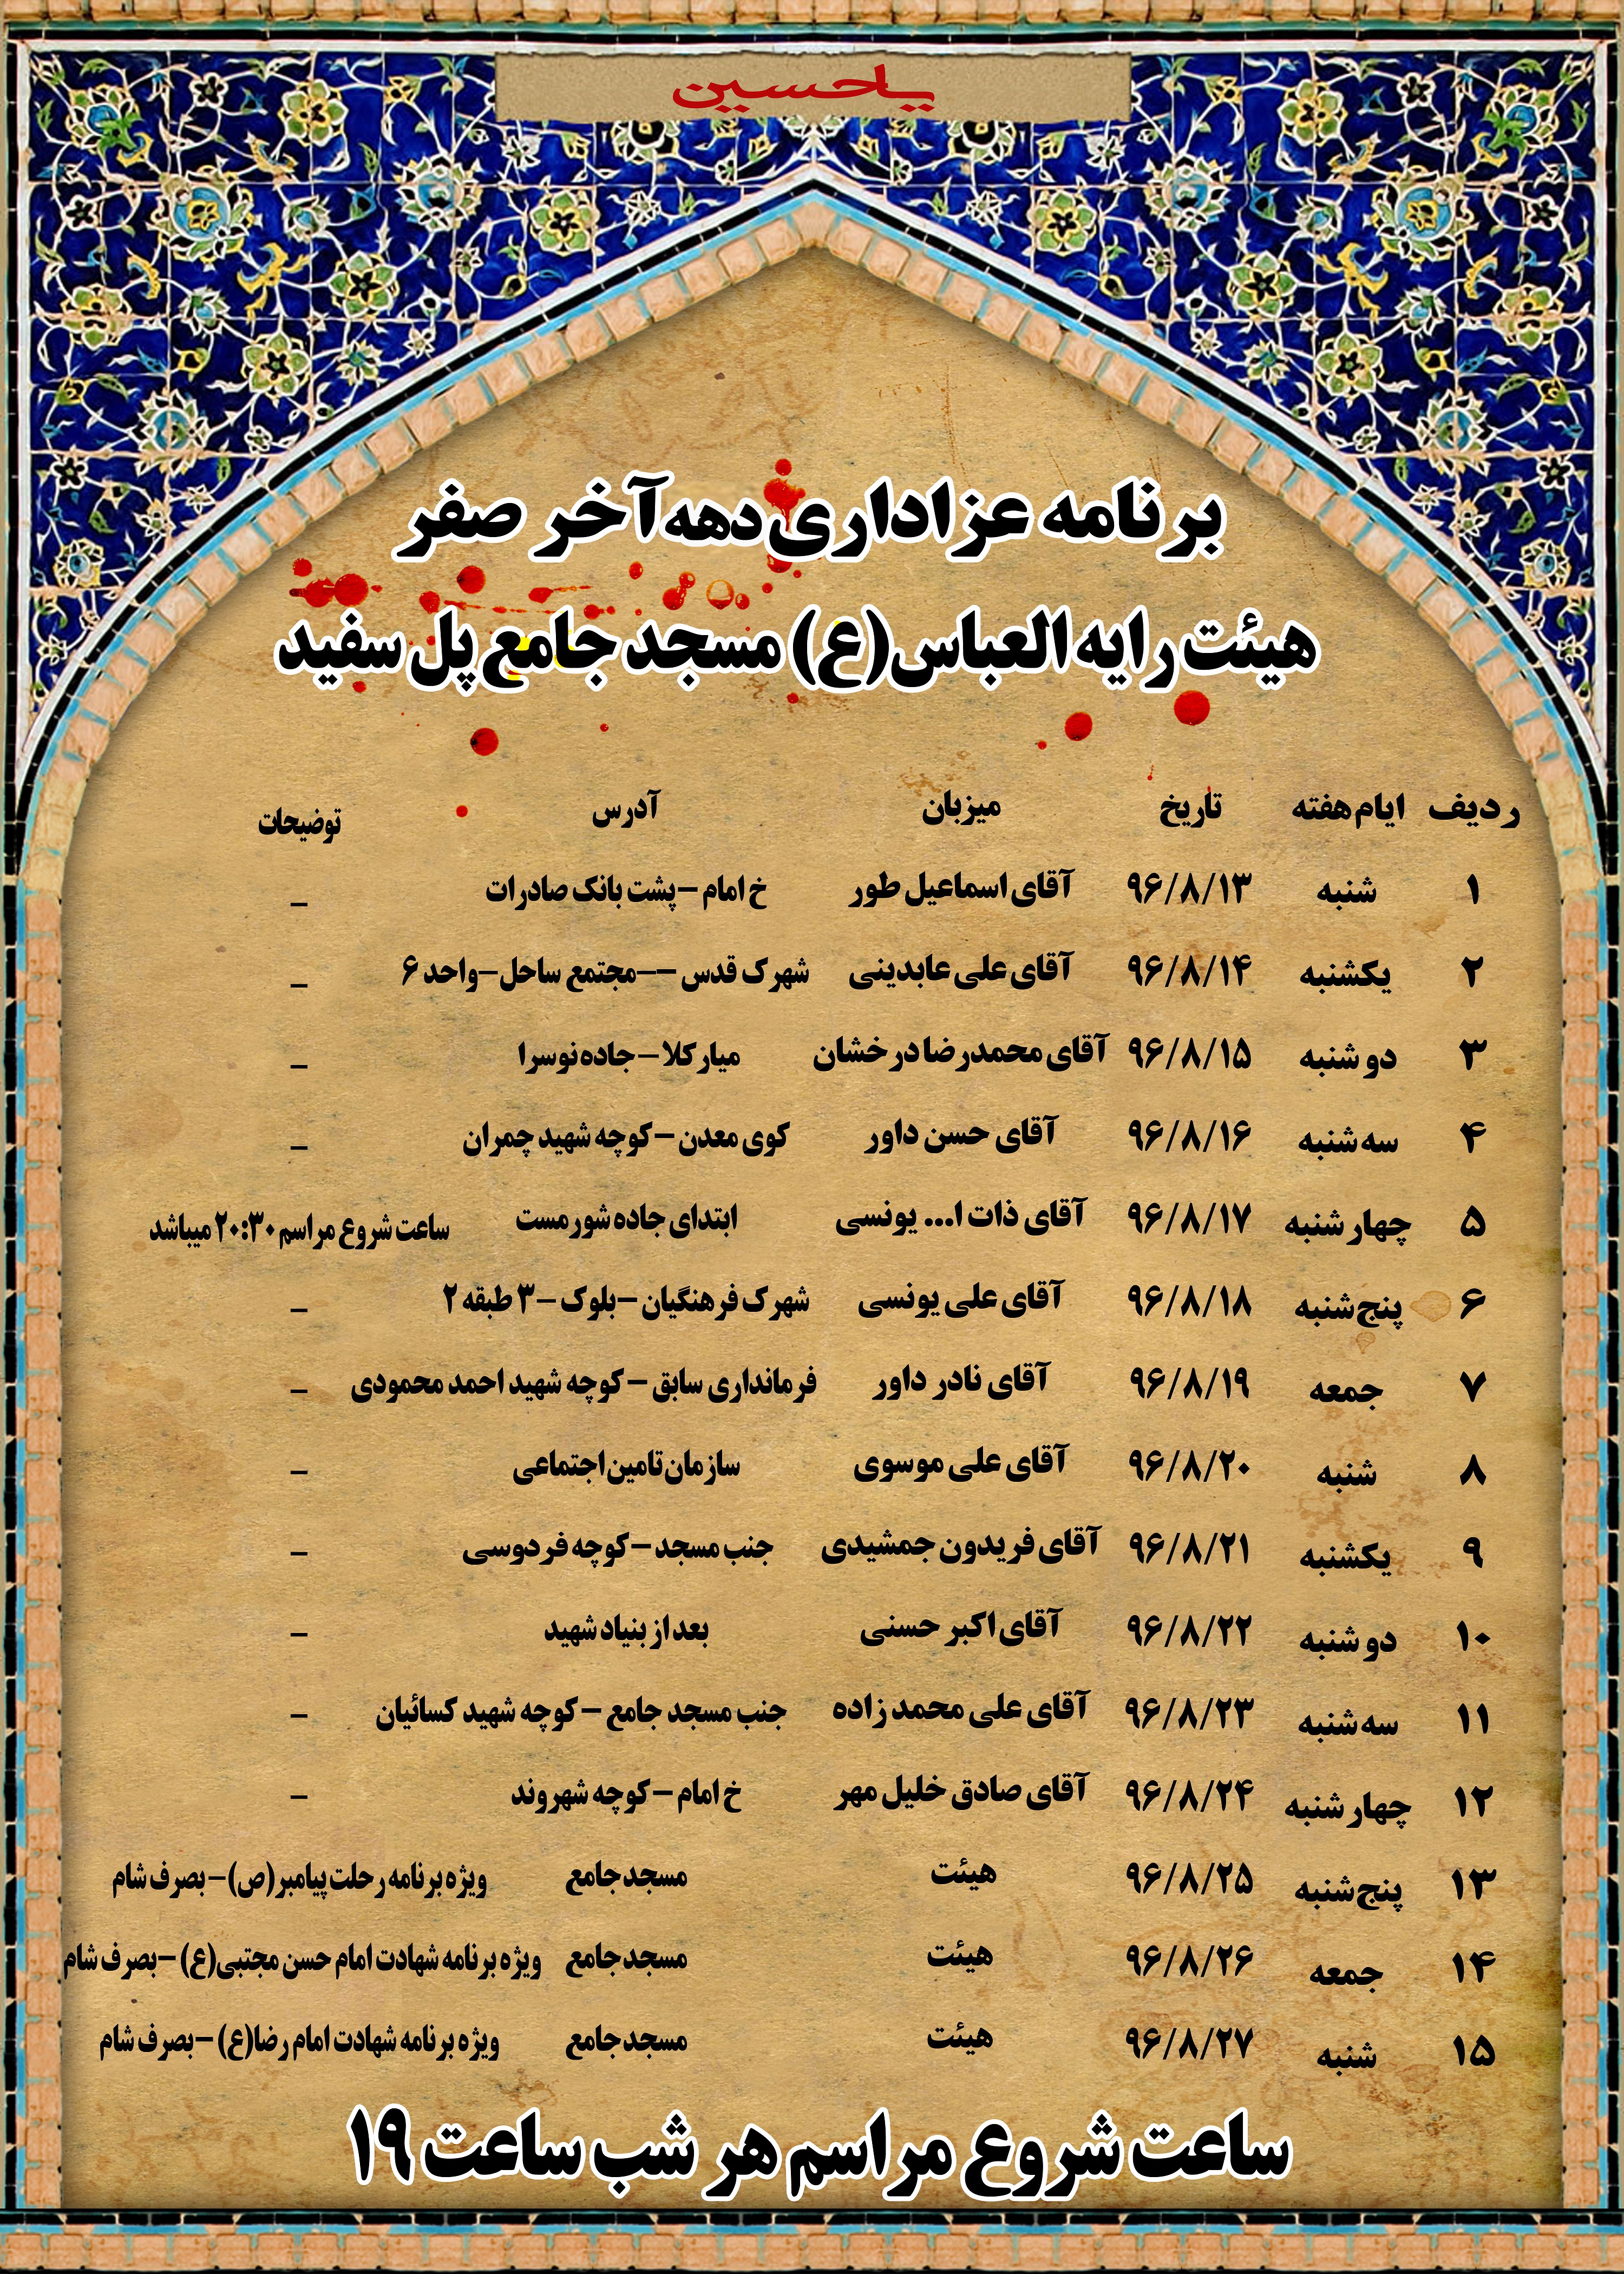 یاحسین
برنامه عزاداری دهه آخر صفر
هیئت رایه العباس(ع) مسجد جامع پل سفید
ردیف ایام هفته تاریخ میزبان آدرس توضیحات
۱ شنبه ۹۶/۸/۱۳ آقای اسماعیل طور خ امام – پشت بانک صادرات _
۲ یکشنبه ۹۶/۸/۱۴ آقای علی عابدینی شهرک قدس –-مجتمع ساحل–واحد ۶ _
۳ دوشنبه ۹۶/۸/۱۵ آقای محمدرضا درخشان میارکلا – جاده نوسرا _
۴ سه شنبه ۹۶/۸/۱۶ آقای حسن داور کوی معدن – کوچه شهید چمران _
۵ چهارشنبه ۹۶/۸/۱۷ آقای ذات ا... یونسی ابتدای جاده شورمست ساعت شروع مراسم ۲۰:۳۰ میباشد
۶ پنج شنبه ۹۶/۸/۱۸ آقای علی یونسی شهرک فرهنگیان –بلوک – ۳ طبقه ۲ _
۷ جمعه ۹۶/۸/۱۹ آقای نادر داور فرمانداری سابق – کوچه شهید احمد محمودی _
۸ شنبه ۹۶/۸/۲۰ آقای علی موسوی سازمان تامین اجتماعی _
۹ یکشنبه ۹۶/۸/۲۱ آقای فریدون جمشیدی جنب مسجد – کوچه فردوسی _
۱۰ دوشنبه ۹۶/۸/۲۲ آقای اکبر حسنی بعد از بنیاد شهید _
۱۱ سه شنبه ۹۶/۸/۲۳ آقای علی محمد زاده جنب مسجد جامع – کوچه شهید کسائیان _
۱۲ چهارشنبه ۹۶/۸/۲۴ آقای صادق خلیل مهر خ امام – کوچه شهروند _
۱۳ پنج شنبه ۹۶/۸/۲۵ هیئت مسجد جامع ویژه برنامه رحلت پیامبر(ص) – بصرف شام
۱۴ جمعه ۹۶/۸/۲۶ هیئت مسجد جامع ویژه برنامه شهادت امام حسن مجتبی(ع) –بصرف شام
۱۵ شنبه ۹۶/۸/۲۷ هیئت مسجد جامع ویژه برنامه شهادت امام رضا(ع) –بصرف شام
ساعت شروع مراسم هر شب ساعت ۱۹